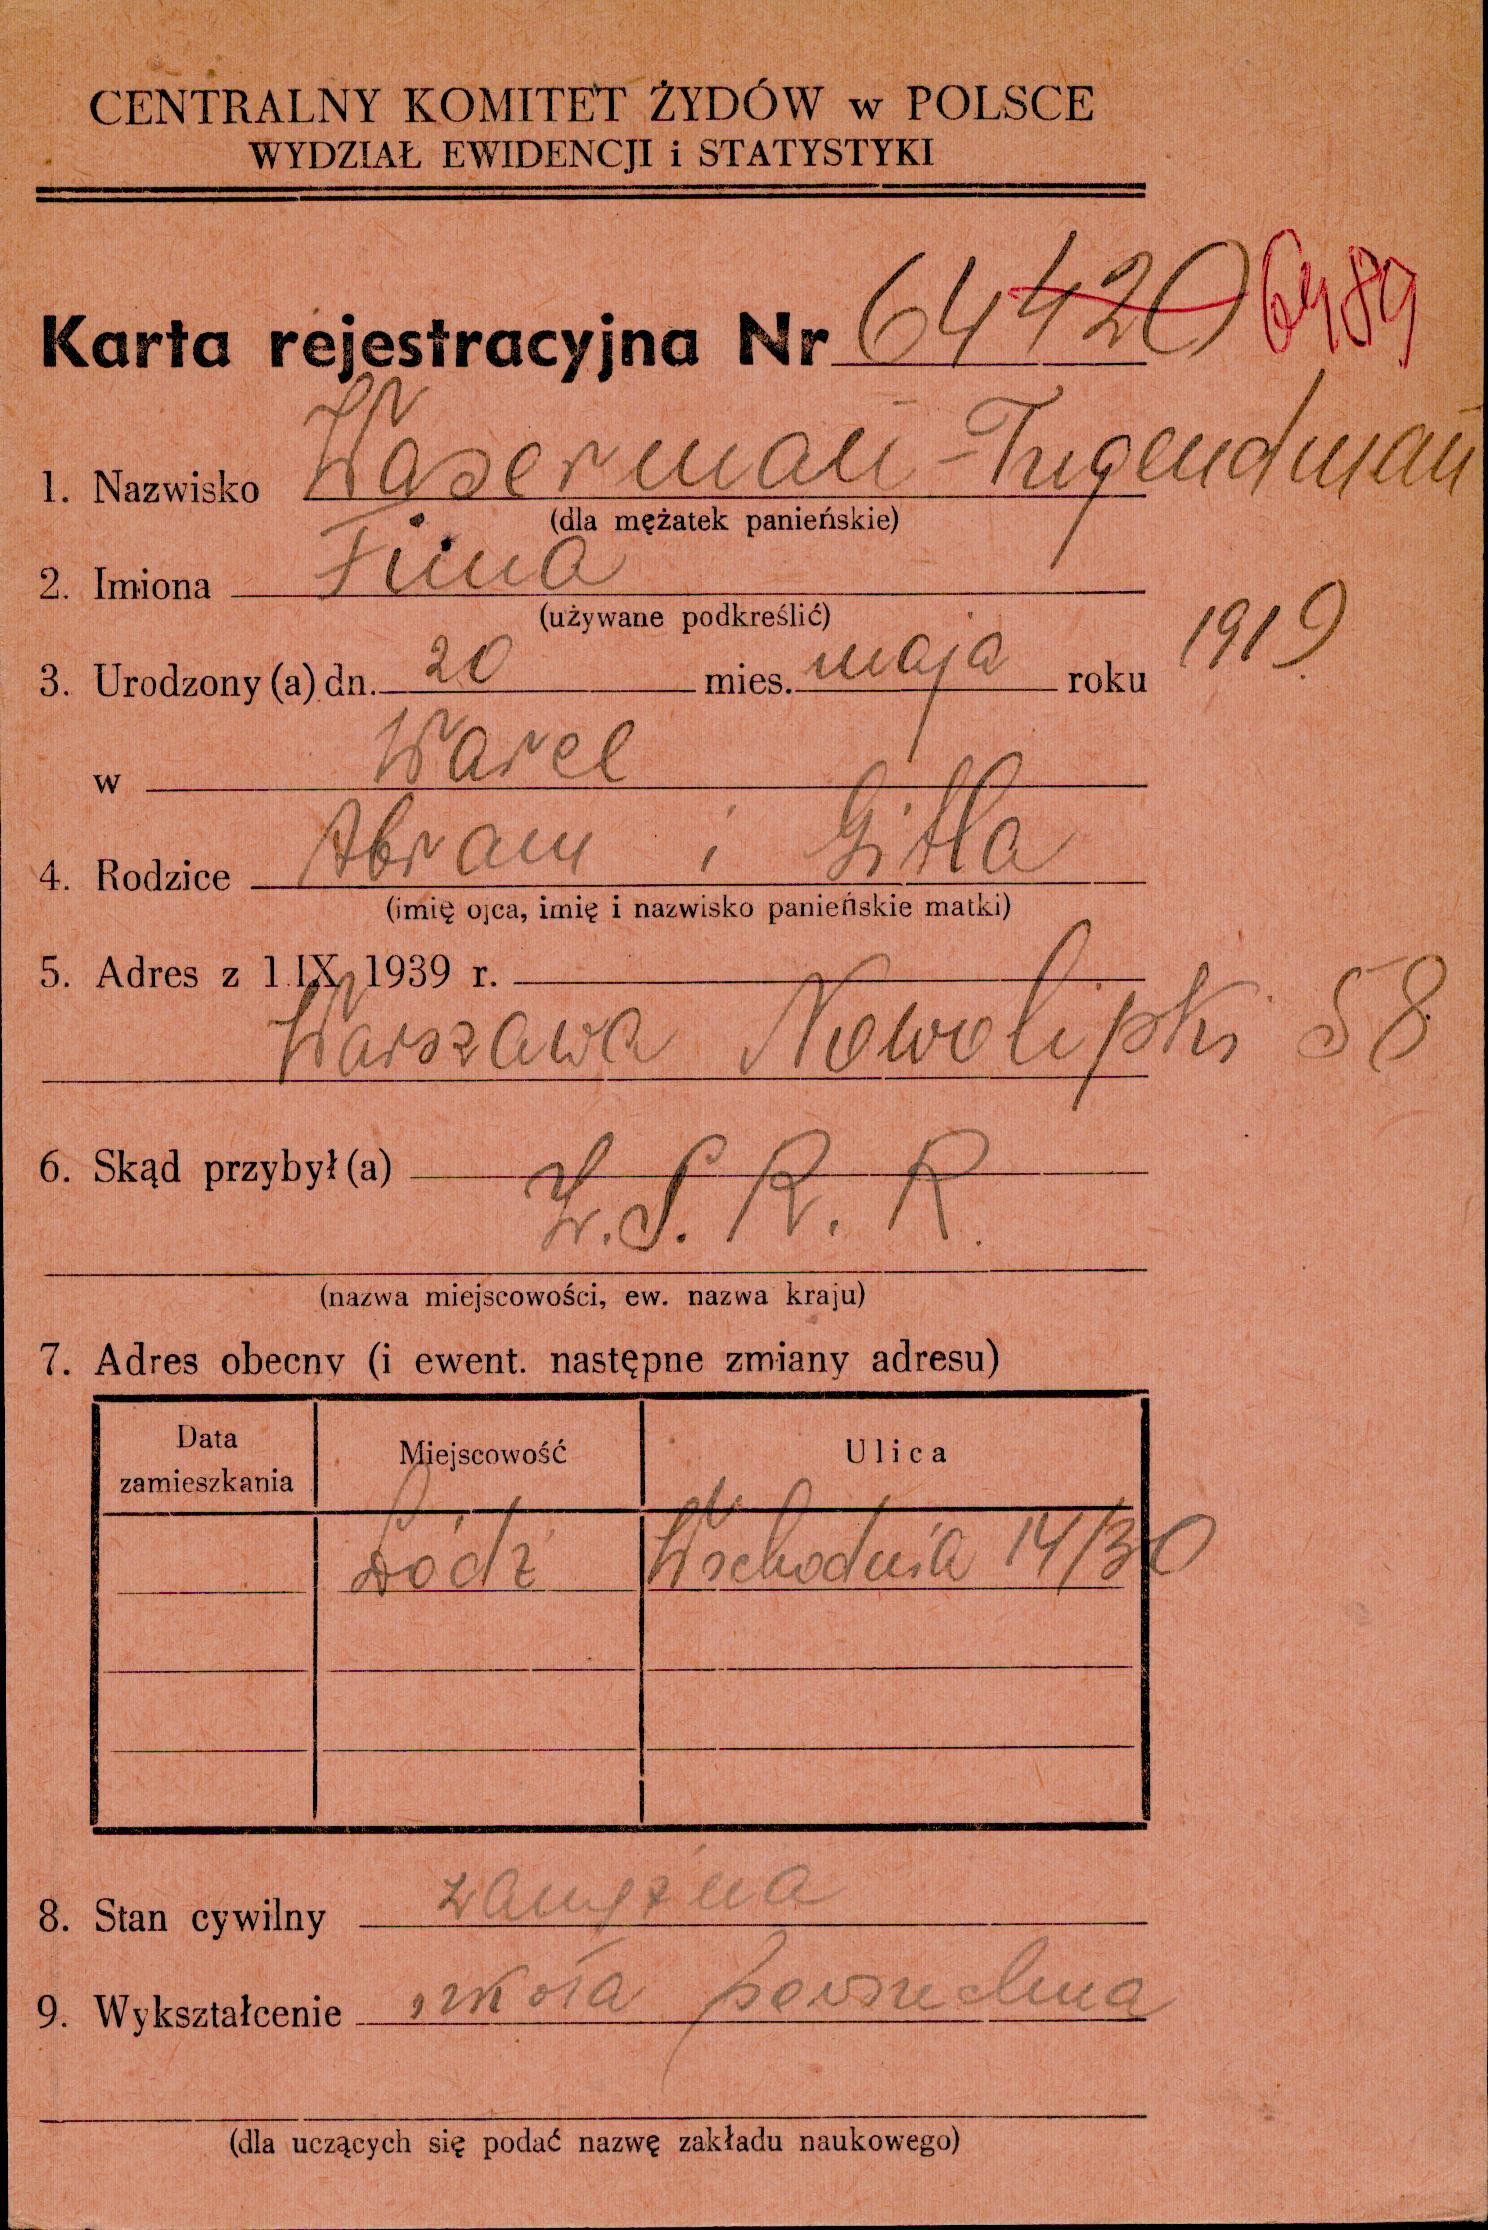 CENTRALNY KOMITET ŻYDÓW w POLSCE
WYDZIAŁ EWIDENCJI i STATYSTYKI
Karta rejestracyjna Nr 64420 6489
1. Nazwisko Waserman-Tugendman
(dla mężatek panieńskie)
2. Imiona Fima
(używane podkreślić)
3. Urodzony (a) dn. 20 mies. maja roku 1919
w Warce
4. Rodzice Abram i Gitla
(imię ojca, imię i nazwisko panieńskie matki)
5. Adres z 1 IX 1939 r.
Warszawa Nowolipki 58
6. Skąd przybył (a)
Z.S.R.R.
(nazwa miejscowości, ew. nazwa kraju)
7. Adres obecny (i ewent. następne zmiany adresu)
Data zamieszkania Miejscowość Ulica
Łódź Wschodnia 14/30
8. Stan cywilny zamężna
9. Wykształcenie szkoła powszechna
(dla uczących się podać nazwę zakładu naukowego)